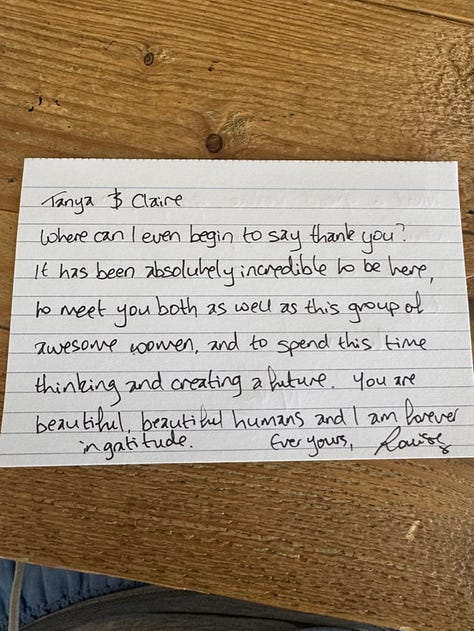 Tanya & Claire
Where can I even begin to say thank you?
It has been absolutely incredible to be here,
to meet you both as well as this group of
awesome women, and to spend this time
thinking and creating a future. You are
beautiful, beautiful humans and I am forever
in gratitude. Ever yours, Louise